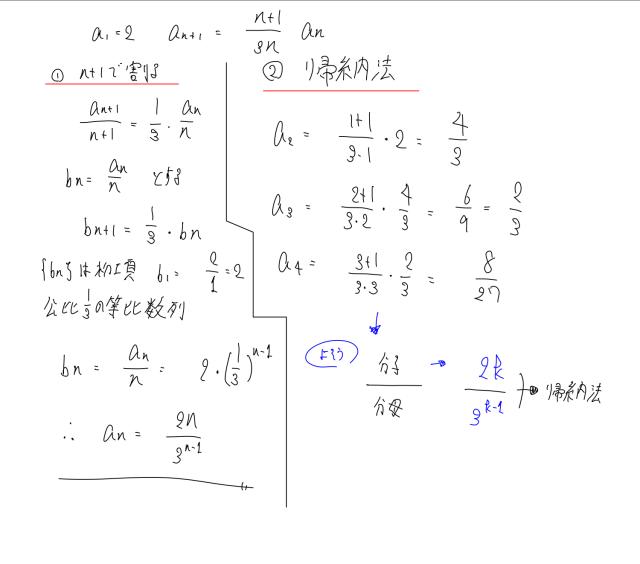 a₁=2 aₙ₊₁ = (n+1)/(3n) aₙ
① n+1で割る
aₙ₊₁/(n+1) = 1/3 · aₙ/n
bₙ = aₙ/n とする
bₙ₊₁ = 1/3 · bₙ
{bₙ}は初項 b₁ = 2/1 = 2
公比 1/3 の等比数列
bₙ = aₙ/n = 2·(1/3)ⁿ⁻¹
∴ aₙ = 2n/3ⁿ⁻¹
② 帰納法
a₂ = (1+1)/(3·1) · 2 = 4/3
a₃ = (2+1)/(3·2) · 4/3 = 6/9 = 2/3
a₄ = (3+1)/(3·3) · 2/3 = 8/27
↓
よそう 分子/分母 → 2k/3ᵏ⁻¹ } → 帰納法